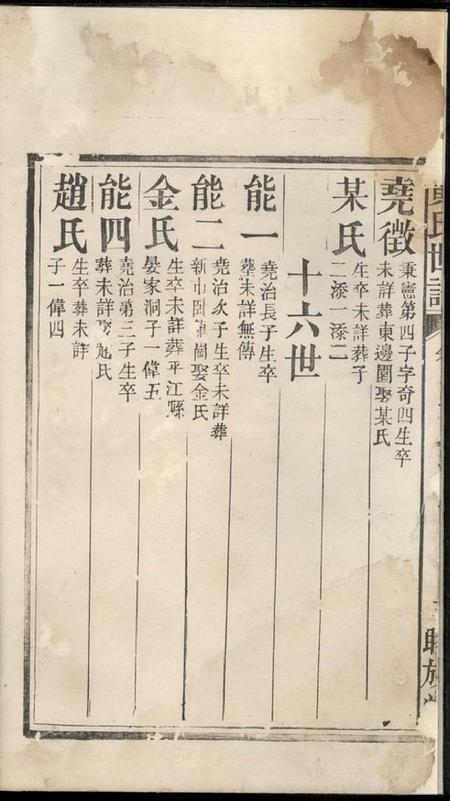 堯徵
秉憲第四子字奇四生卒
未詳葬東邊園娶某氏
某氏
生卒未詳葬子
二添一添二
十六世
能一
堯治長子生卒
葬未詳無傳
能二
堯治次子生卒未詳葬
娶金氏
金氏
生卒未詳葬平江縣
晏家洞子一偉五
能四
堯治第三子生卒
葬未詳娶趙氏
趙氏
生卒葬未詳
子一偉四
氏世譜